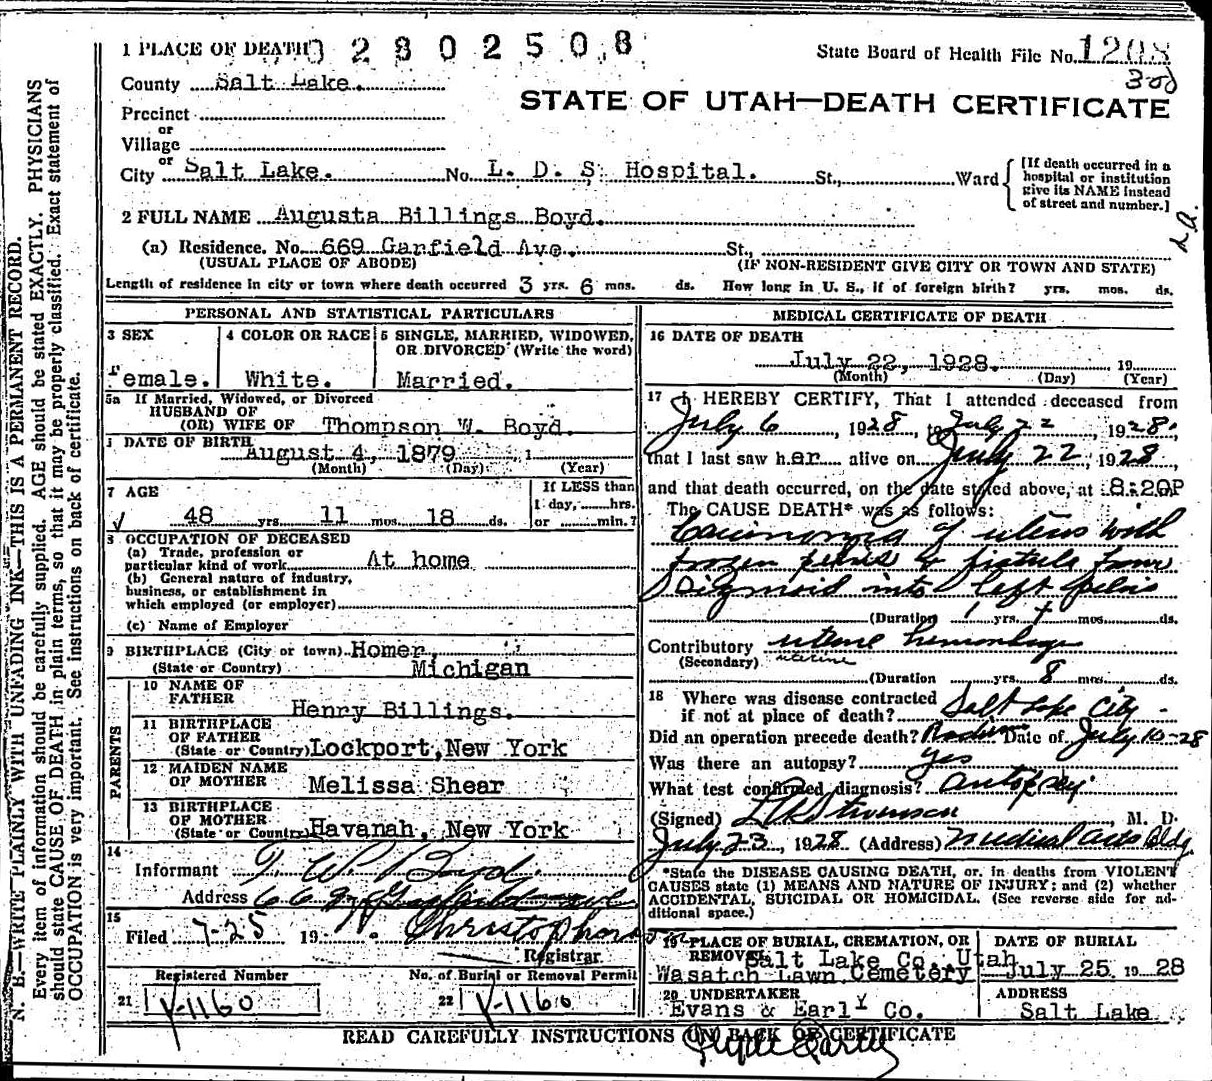 1 PLACE OF DEATH 0 2 8 0 2 5 0 8
State Board of Health File No. 1208
300
County Salt Lake.
STATE OF UTAH—DEATH CERTIFICATE
Precinct
or
Village
or
City Salt Lake. No. L. D. S. Hospital. St., Ward
[If death occurred in a
hospital or institution
give its NAME instead
of street and number.]
2 FULL NAME Augusta Billings Boyd.
(a) Residence. No. 669 Garfield Ave. St.,
(USUAL PLACE OF ABODE) (IF NON-RESIDENT GIVE CITY OR TOWN AND STATE)
Length of residence in city or town where death occurred 3 yrs. 6 mos. ds. How long in U. S., if of foreign birth? yrs. mos. ds.
N. B.—WRITE PLAINLY WITH UNFADING INK—THIS IS A PERMANENT RECORD.
Every item of information should be carefully supplied. AGE should be stated EXACTLY. PHYSICIANS
should state CAUSE OF DEATH in plain terms, so that it may be properly classified. Exact statement of
OCCUPATION is very important. See instructions on back of certificate.
PERSONAL AND STATISTICAL PARTICULARS
3 SEX
Female.
4 COLOR OR RACE
White.
5 SINGLE, MARRIED, WIDOWED,
OR DIVORCED (Write the word)
Married.
5a If Married, Widowed, or Divorced
HUSBAND OF
(OR) WIFE OF Thompson W. Boyd.
DATE OF BIRTH
August 4, 1879
(Month) (Day) (Year)
7 AGE
48 yrs. 11 mos. 18 ds.
If LESS than
1 day, hrs.
or min.?
8 OCCUPATION OF DECEASED
(a) Trade, profession or
particular kind of work At home
(b) General nature of industry,
business, or establishment in
which employed (or employer)
(c) Name of Employer
9 BIRTHPLACE (City or town) Homer,
(State or Country) Michigan
PARENTS
10 NAME OF
FATHER Henry Billings.
11 BIRTHPLACE
OF FATHER
(State or Country) Lockport, New York
12 MAIDEN NAME
OF MOTHER Melissa Shear
13 BIRTHPLACE
OF MOTHER
(State or Country) Havanah, New York
14
Informant T. W. Boyd.
Address 669 Garfield ave
15
Filed 7-25 19
Registrar
Registered Number
21 V-1160
No. of Burial or Removal Permit
22 V-1160
MEDICAL CERTIFICATE OF DEATH
16 DATE OF DEATH
July 22, 1928. 19
(Month) (Day) (Year)
17 I HEREBY CERTIFY, That I attended deceased from
July 6, 1928, to July 22, 1928,
that I last saw her alive on July 22, 1928
and that death occurred, on the date stated above, at 8:20P
The CAUSE DEATH* was as follows:
Carcinomia of uterus with
frozen pelvis & fistula from
Sigmoid into left pelvis
(Duration 1 yrs. mos. ds.
Contributory uterine hemorrhage
(Secondary) uterine
(Duration yrs. 8 mos. ds.
18 Where was disease contracted
if not at place of death? Salt Lake City -
Did an operation precede death? Radium Date of July 10-28
Was there an autopsy? yes
What test confirmed diagnosis? autopsy
(Signed) Stevenson, M. D.
July 23, 1928 (Address) Medical Arts Bldg.
*State the DISEASE CAUSING DEATH, or, in deaths from VIOLENT
CAUSES state (1) MEANS AND NATURE OF INJURY; and (2) whether
ACCIDENTAL, SUICIDAL OR HOMICIDAL. (See reverse side for ad-
ditional space.)
19 PLACE OF BURIAL, CREMATION, OR
REMOVAL Salt Lake Co. Utah
Wasatch Lawn Cemetery
DATE OF BURIAL
July 25 19 28
20 UNDERTAKER
Evans & Early Co.
ADDRESS
Salt Lake
READ CAREFULLY INSTRUCTIONS ON BACK OF CERTIFICATE